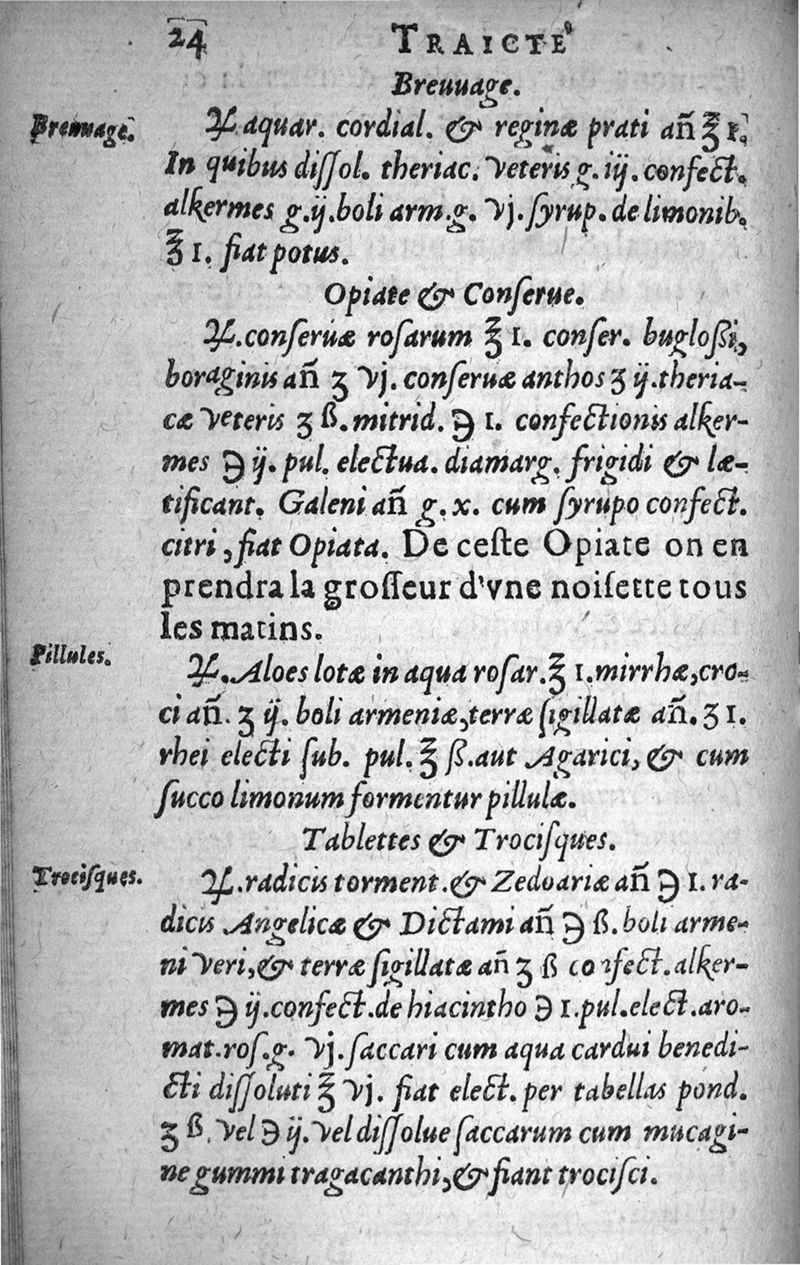 24 TRAICTÉ
Breuuage.
Breuuage. ℞. aquar. cordial. & reginæ prati añ ℥ 1.
In quibus dissol. theriac. veteris g. iij. confect.
alkermes g. ij. boli arm. g. vj. syrup. de limonib.
℥ 1. fiat potus.
Opiate & Conserue.
℞. conseruæ rosarum ℥ 1. conser. buglossi,
boraginis añ ʒ vj. conseruæ anthos ʒ ij. theria-
cæ veteris ʒ ß. mitrid. ℈ 1. confectionis alker-
mes ℈ ij. pul. electua. diamarg. frigidi & læ-
tificant. Galeni añ g. x. cum syrupo confect.
citri, fiat Opiata. De ceste Opiate on en
prendra la grosseur d'vne noisette tous
les matins.
Pillules. ℞. Aloes lotæ in aqua rosar. ℥ 1. mirrhæ, cro-
ci añ. ʒ ij. boli armeniæ, terræ sigillatæ añ. ʒ 1.
rhei electi sub. pul. ℥ ß. aut Agarici, & cum
succo limonum formentur pillulæ.
Tablettes & Trocisques.
Trocisques. ℞. radicis torment. & Zedoariæ añ ℈ 1. ra-
dicis Angelicæ & Dictami añ ℈ ß. boli arme-
ni veri, & terræ sigillatæ añ ʒ ß confect. alker-
mes ℈ ij. confect. de hiacintho ℈ 1. pul. elect. aro-
mat. ros. g. vj. saccari cum aqua cardui benedi-
cti dissoluti ℥ vj. fiat elect. per tabellas pond.
ʒ ß. vel ℈ ij. vel dissolue saccarum cum mucagi-
ne gummi tragacanthi, & fiant trocisci.